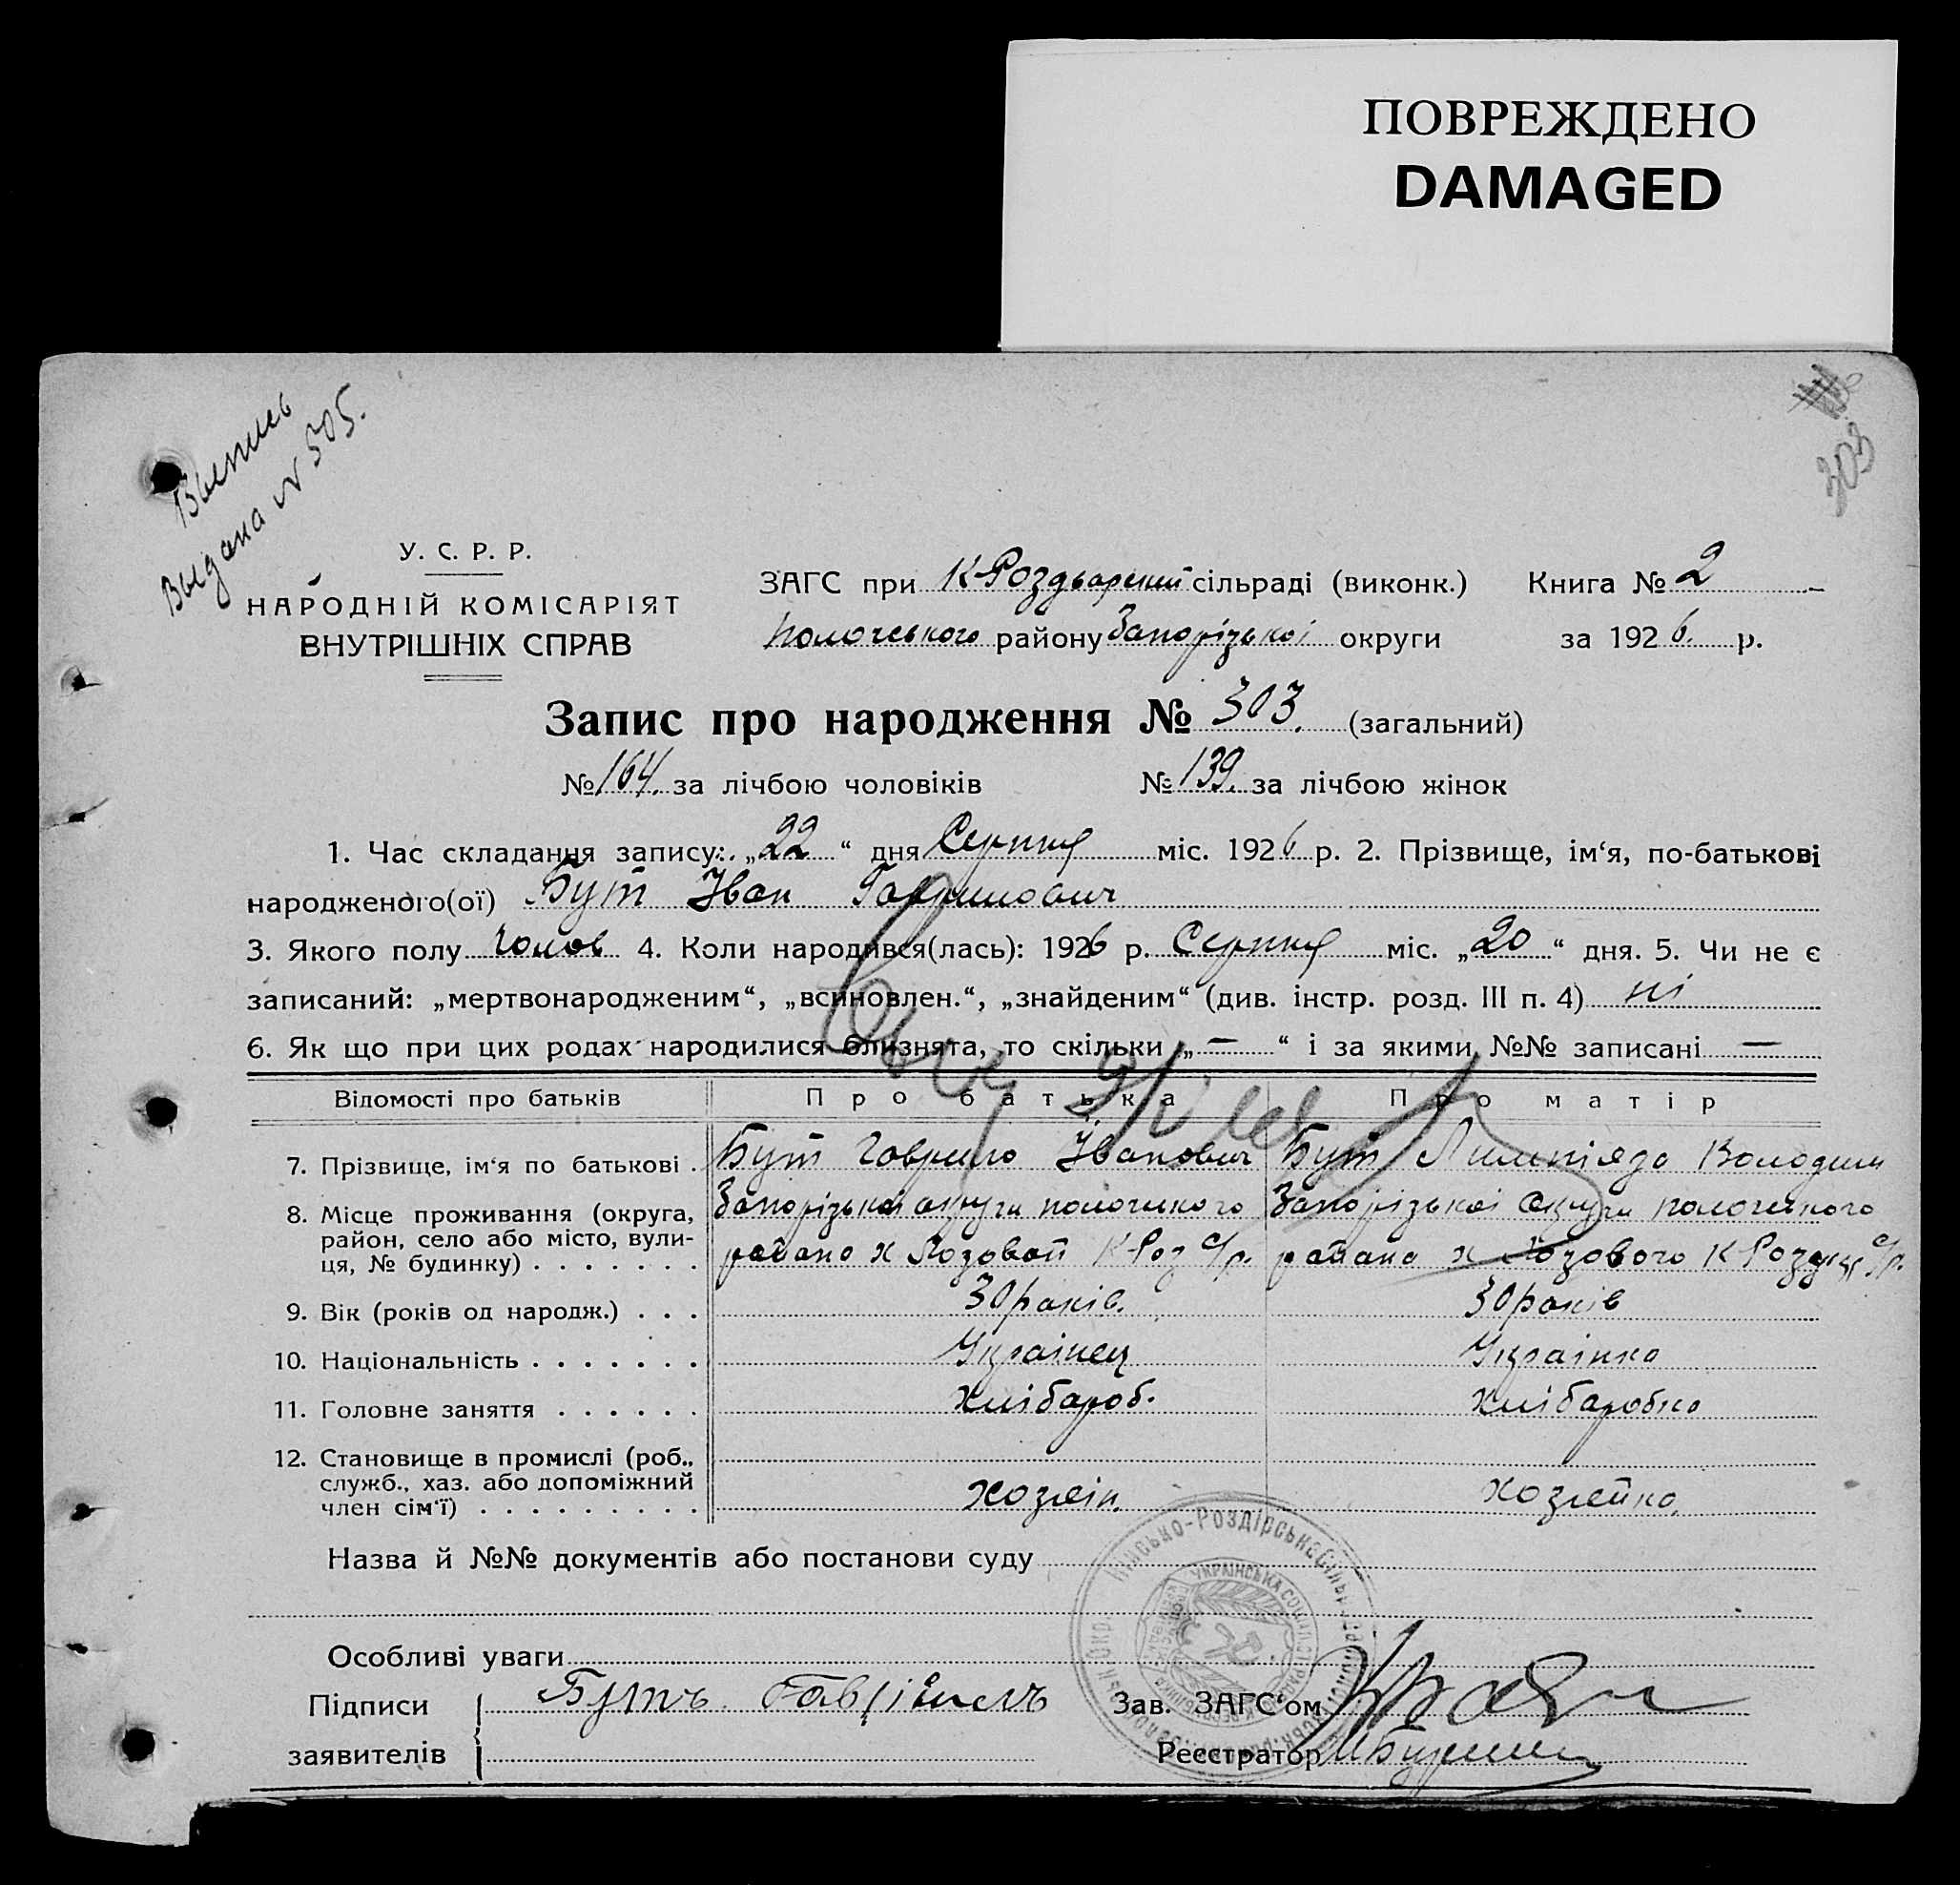 ПОВРЕЖДЕНО
DAMAGED
Выпись
выдана N 505.
303
У. С. Р. Р.
НАРОДНІЙ КОМІСАРІЯТ
ВНУТРІШНІХ СПРАВ
ЗАГС при К-Роздорській сільраді (виконк.) Книга № 2
Пологського району Запорізькоі округи за 1926. р.
Запис про народження № 303. (загальний)
№ 164. за лічбою чоловіків № 139. за лічбою жінок
1. Час складання запису: „22“ дня Серпня міс. 1926 р. 2. Прізвище, ім‘я, по-батькові
народженого(ої) Бут Іван Гаврилович
3. Якого полу чолов 4. Коли народився(лась): 1926 р. Серпня міс. „20“ дня. 5. Чи не є
записаний: „мертвонародженим“, „всиновлен.“, „знайденим“ (див. інстр. розд. III п. 4) ні
6. Як що при цих родах народилися близнята, то скільки „—“ і за якими №№ записані —
Відомості про батьків Про батька Про матір
7. Прізвище, ім‘я по батькові . Бут Гаврило Іванович Бут Володим
8. Місце проживання (округа, Запорізькоі округи пологského Запорізькоі округи
район, село або місто, вули-
ця, № будинку) . . . . . . . района х Лозовой К Роз с/р. района х Лозового К Розд с/р.
9. Вік (років од народж.) . . . 30 років. 30 років
10. Національність . . . . . . . Украінец Украінка
11. Головне заняття . . . . . . хлібароб. хлібаробка
12. Становище в промислі (роб.,
служб., хаз. або допоміжний
член сім‘ї) . . . . . . . . . хозяін. хозяйка.
Назва й №№ документів або постанови суду
Особливі уваги
Підписи Бутъ Гавріилъ Зав. ЗАГС‘ом
заявителів Реєстратор